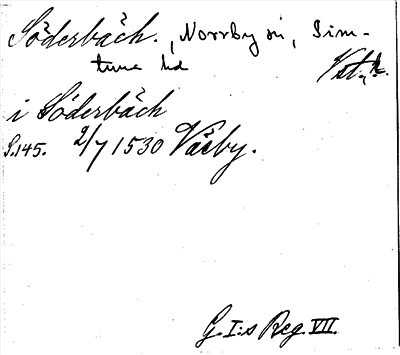 Söderbäck. , Norrby sn, Sim-
tuna hd
Vstm.
i Söderbäck
S.145. 2/7 1530 Väsby.
G.I:s Reg. VII.